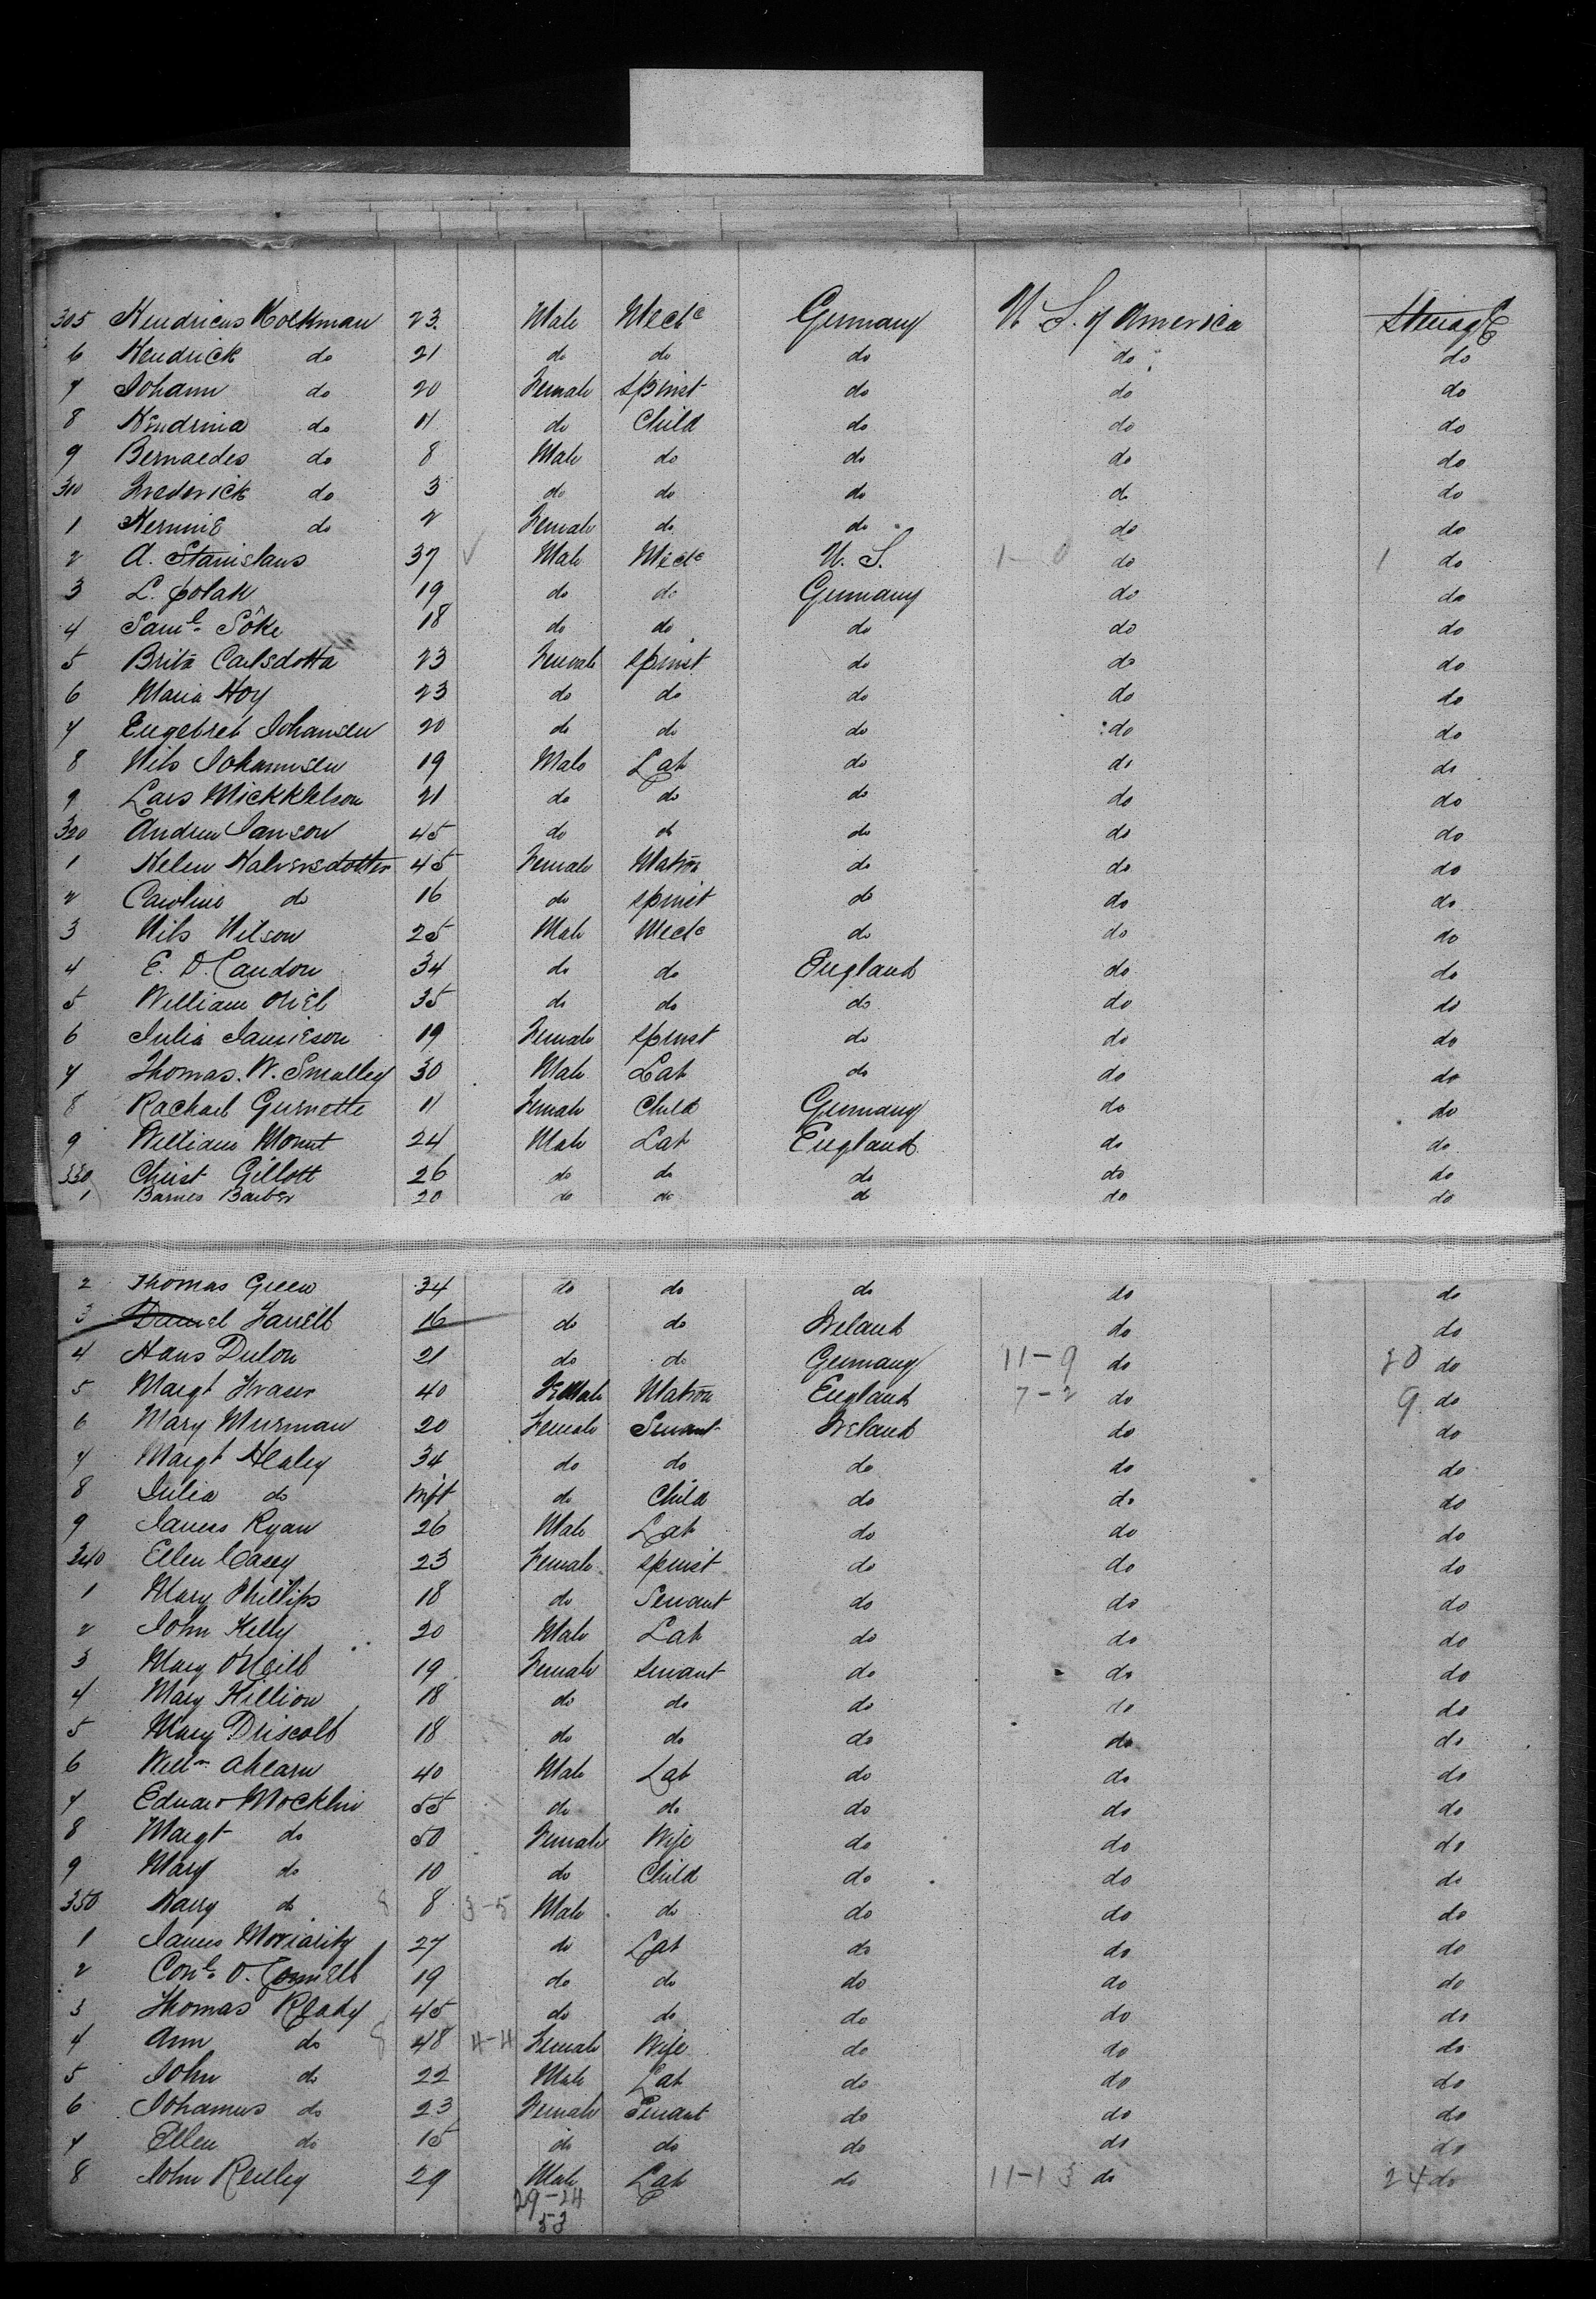 305 Hendricus Holkman 23 Male Mech^c Germany U S. of America Steerage
6 Hendrick do 21 do do do do do
7 Johann do 20 Female Spinst do do do
8 Hendrina do 11 do Child do do do
9 Bernardes do 8 Male do do do do
310 Frederick do 3 do do do do do
1 Hermine do 2 Female do do do do
2 A. Stanislaus 37 ✓ Male Mech^c U. S. 1-0 do 1 do
3 L. Polak 19 do do Germany do do
4 Saml. Sôke 18 do do do do do
5 Brita Carlsdotta 23 Female Spinst do do do
6 Maria Hoy 23 do do do do do
7 Engebret Johansen 20 do do do do do
8 Nils Johannsen 19 Male Lab do do do
9 Lars Mickklelson 21 do do do do do
320 Andrew Janson 45 do do do do do
1 Helen Halversdotter 45 Female Matron do do do
2 Caroline do 16 do Spinst do do do
3 Nils Nilson 25 Male Mech^c do do do
4 E. D. Caudon 34 do do England do do
5 William 35 do do do do do
6 Julia Jamieson 19 Female Spinst do do do
7 Thomas. W. Smalley 30 Male Lab do do do
8 Rachael Gurnette 11 Female Child Germany do do
9 William Mount 24 Male Lab England do do
330 Christ Gillott 26 do do do do do
1 Barnes Barber 20 do do do do do
2 Thomas Green 34 do do do do do
3 Daniel Farrell 16 do do Ireland do do
4 Hans Dulon 21 do do Germany 11-9 do 20 do
5 Margt Fraser 40 Female Matron England 7-2 do 9 do
6 Mary Murnan 20 Female Servant Ireland do do
7 Margt Healey 34 do do do do do
8 Julia do Inft do Child do do do
9 James Ryan 26 Male Lab do do do
340 Ellen Casey 23 Female Spinst do do do
1 Mary Phillips 18 do Servant do do do
2 John Kelly 20 Male Lab do do do
3 Mary O'Neill 19 Female Servant do do do
4 Mary Killion 18 do do do do do
5 Mary Driscoll 18 do do do do do
6 Willm Ahearn 40 Male Lab do do do
7 Edward Mocklin 55 do do do do do
8 Margt do 50 Female Wife do do do
9 Mary do 10 do Child do do do
350 Harry do 8 8 3-5 Male do do do do
1 James Moriarity 27 do Lab do do do
2 Conl. O. Connell 19 do do do do do
3 Thomas Ready 45 do do do do do
4 Ann do 8 48 4-4 Female Wife do do do
5 John do 22 Male Lab do do do
6 Johannus do 23 Female Servant do do do
7 Ellen do 15 do do do do do
8 John Reilley 29 Male Lab do 11-13 do 24 do
29-24
53